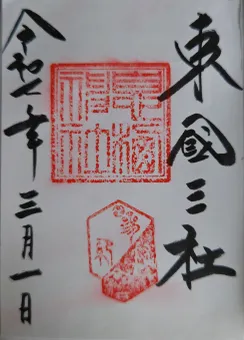 東國三社
息栖
神社
令和七年三月一日